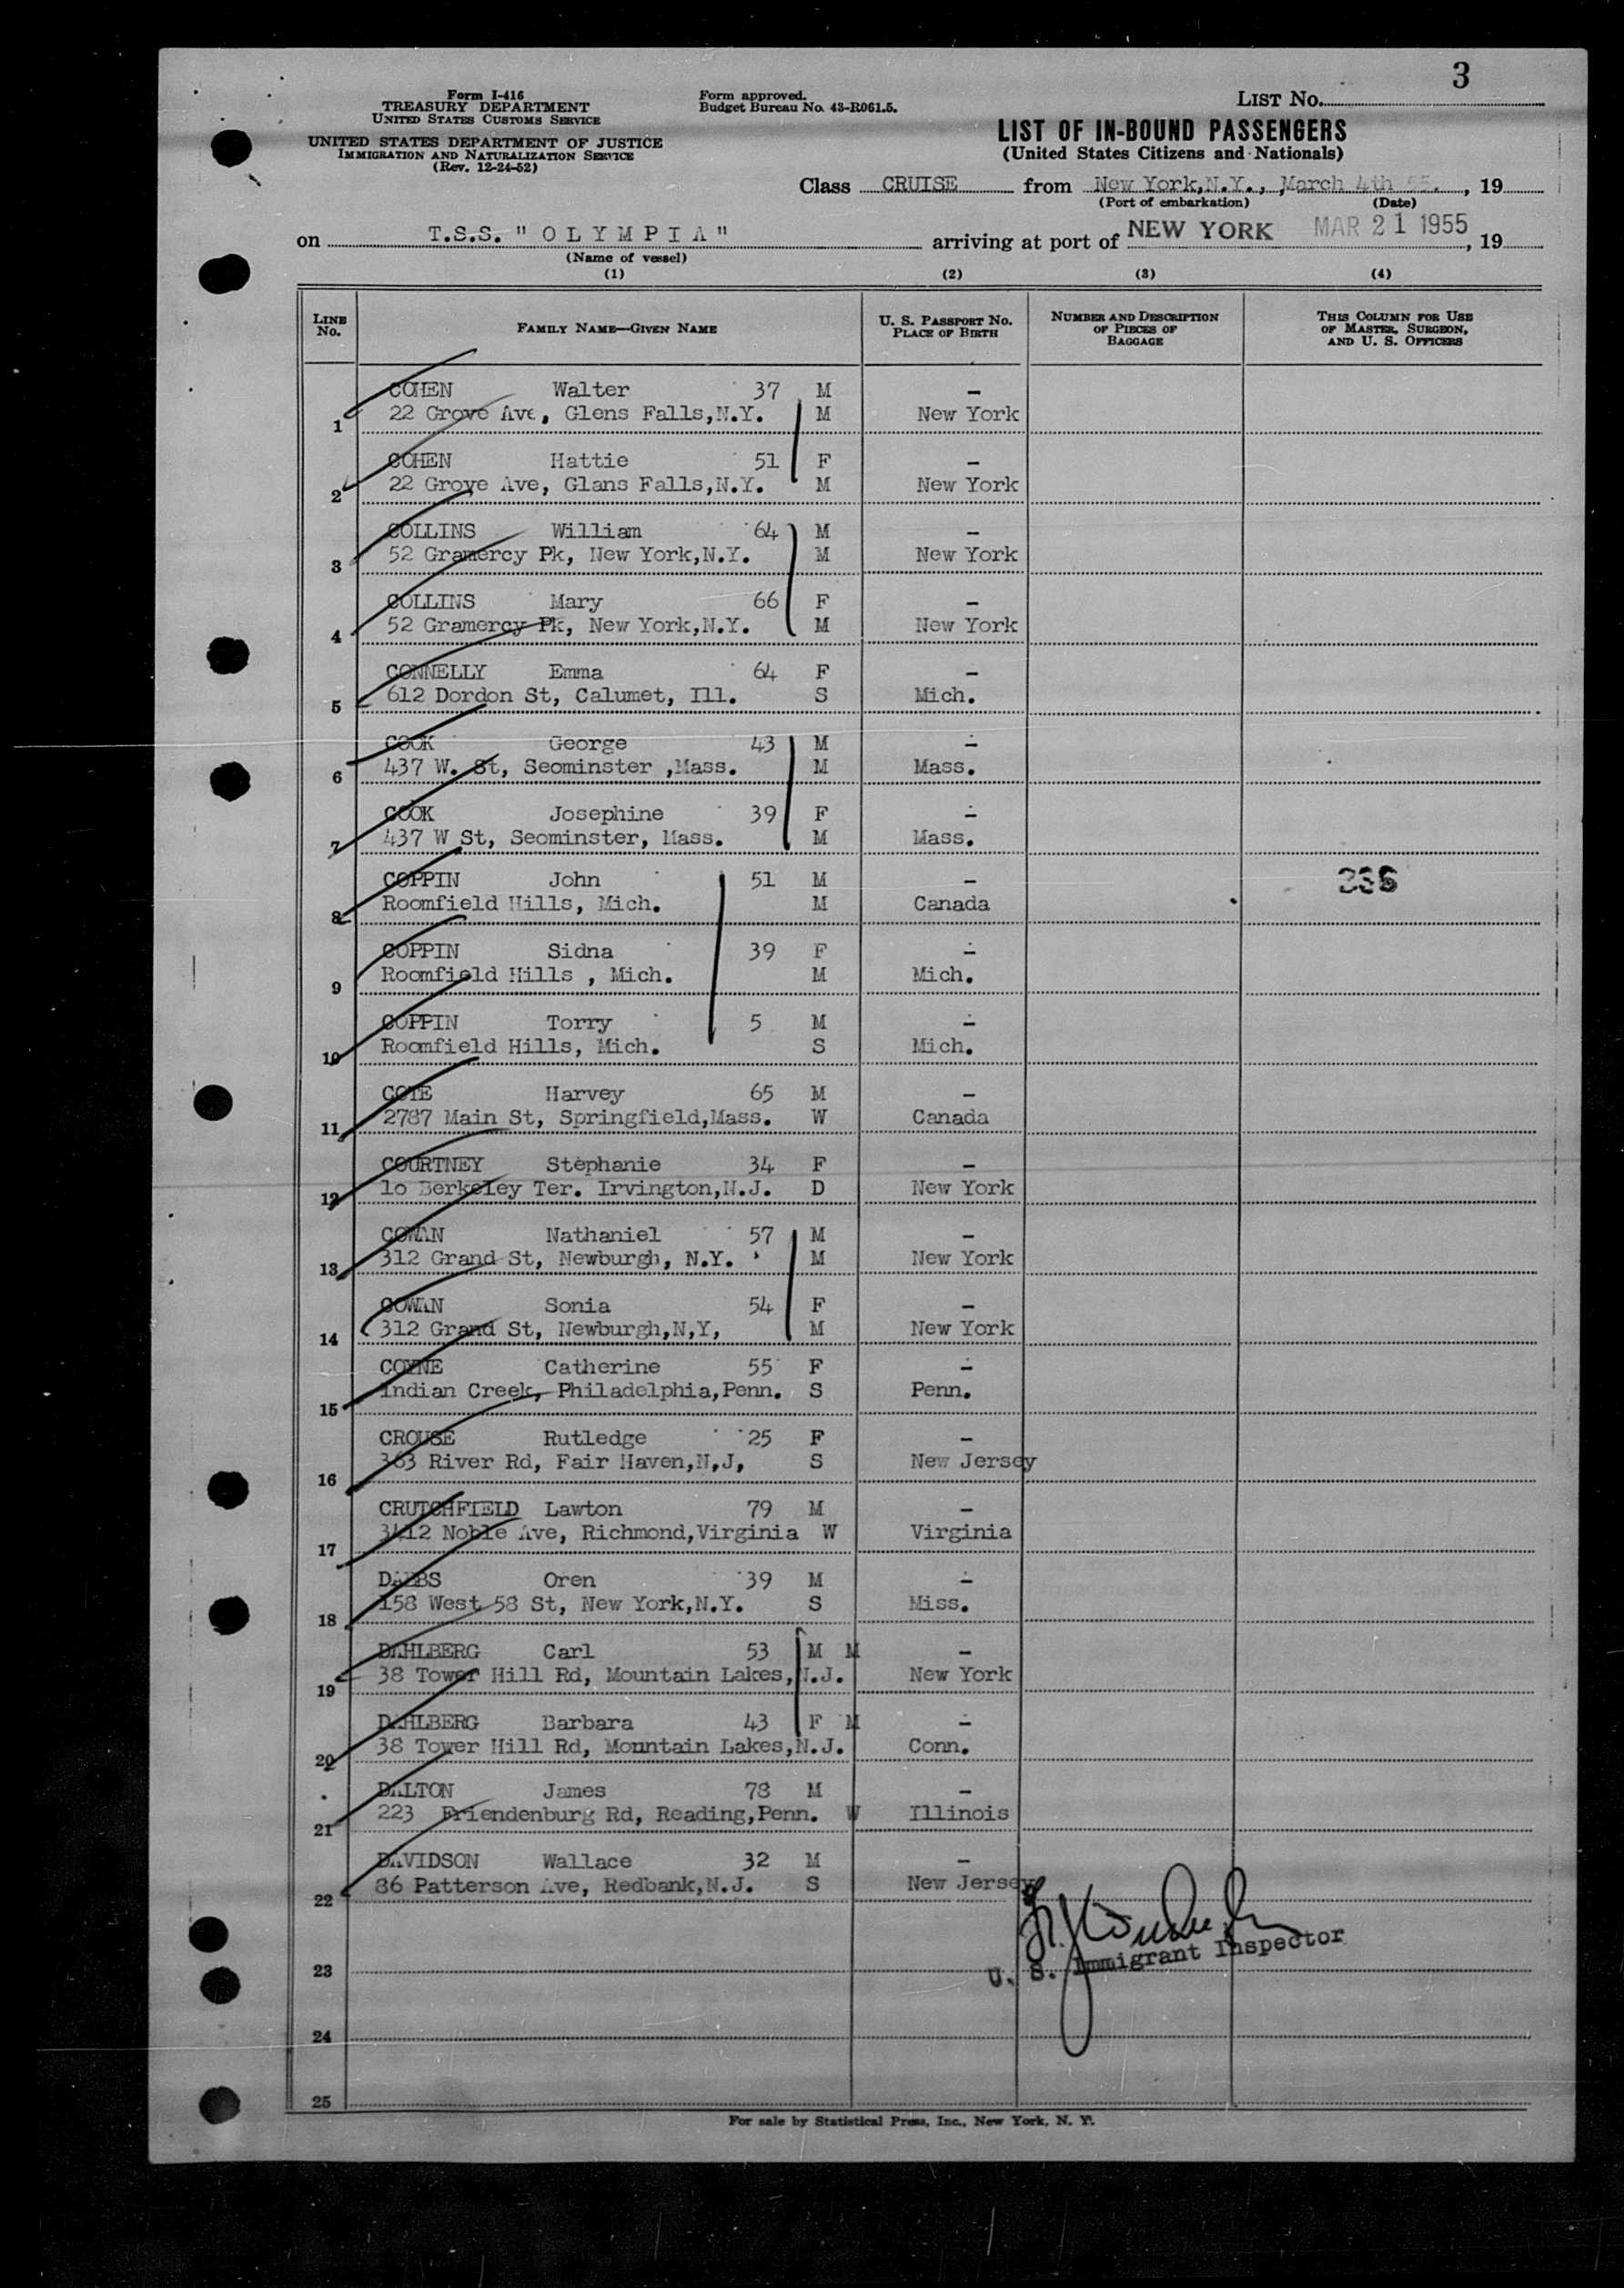 3
Form I-416
TREASURY DEPARTMENT
UNITED STATES CUSTOMS SERVICE
UNITED STATES DEPARTMENT OF JUSTICE
IMMIGRATION AND NATURALIZATION SERVICE
(Rev. 12-24-52)
Form approved.
Budget Bureau No. 43-R061.5.
LIST NO.
LIST OF IN-BOUND PASSENGERS
(United States Citizens and Nationals)
Class CRUISE from New York,N.Y., March 4th 55. , 19
(Port of embarkation) (Date)
on T.S.S. " O L Y M P I A " arriving at port of NEW YORK MAR 21 1955 , 19
(Name of vessel)
(1) (2) (3) (4)
LINE No. FAMILY NAME—GIVEN NAME U. S. PASSPORT NO. PLACE OF BIRTH NUMBER AND DESCRIPTION OF PIECES OF BAGGAGE THIS COLUMN FOR USE OF MASTER, SURGEON, AND U. S. OFFICERS
COHEN Walter 37 M -
1 22 Grove Ave, Glens Falls,N.Y. M New York
COHEN Hattie 51 F -
2 22 Grove Ave, Glans Falls,N.Y. M New York
COLLINS William 64 M -
3 52 Gramercy Pk, New York,N.Y. M New York
COLLINS Mary 66 F -
4 52 Gramercy Pk, New York,N.Y. M New York
CONNELLY Emma 64 F -
5 612 Dordon St, Calumet, Ill. S Mich.
COOK George 43 M -
6 437 W. St, Seominster ,Mass. M Mass.
COOK Josephine 39 F -
7 437 W St, Seominster, Mass. M Mass.
COPPIN John 51 M - 336
8 Roomfield Hills, Mich. M Canada
COPPIN Sidna 39 F -
9 Roomfield Hills , Mich. M Mich.
COPPIN Torry 5 M -
10 Roomfield Hills, Mich. S Mich.
COTE Harvey 65 M -
11 2787 Main St, Springfield,Mass. W Canada
COURTNEY Stephanie 34 F -
12 1o Berkeley Ter. Irvington,N.J. D New York
COWAN Nathaniel 57 M -
13 312 Grand St, Newburgh, N.Y. M New York
COWAN Sonia 54 F -
14 312 Grand St, Newburgh,N,Y, M New York
COYNE Catherine 55 F -
15 Indian Creek, Philadelphia,Penn. S Penn.
CROUSE Rutledge 25 F -
16 363 River Rd, Fair Haven,N,J, S New Jersey
CRUTCHFIELD Lawton 79 M -
17 3412 Noble Ave, Richmond,Virginia W Virginia
DABBS Oren 39 M -
18 158 West 58 St, New York,N.Y. S Miss.
DAHLBERG Carl 53 M M -
19 38 Tower Hill Rd, Mountain Lakes,N.J. New York
DAHLBERG Barbara 43 F M -
20 38 Tower Hill Rd, Mountain Lakes,N.J. Conn.
DALTON James 78 M -
21 223 Friendenburg Rd, Reading,Penn. W Illinois
DAVIDSON Wallace 32 M -
22 86 Patterson Ave, Redbank,N.J. S New Jersey
U. S. Immigrant Inspector
23
24
25
For sale by Statistical Press, Inc., New York, N. Y.